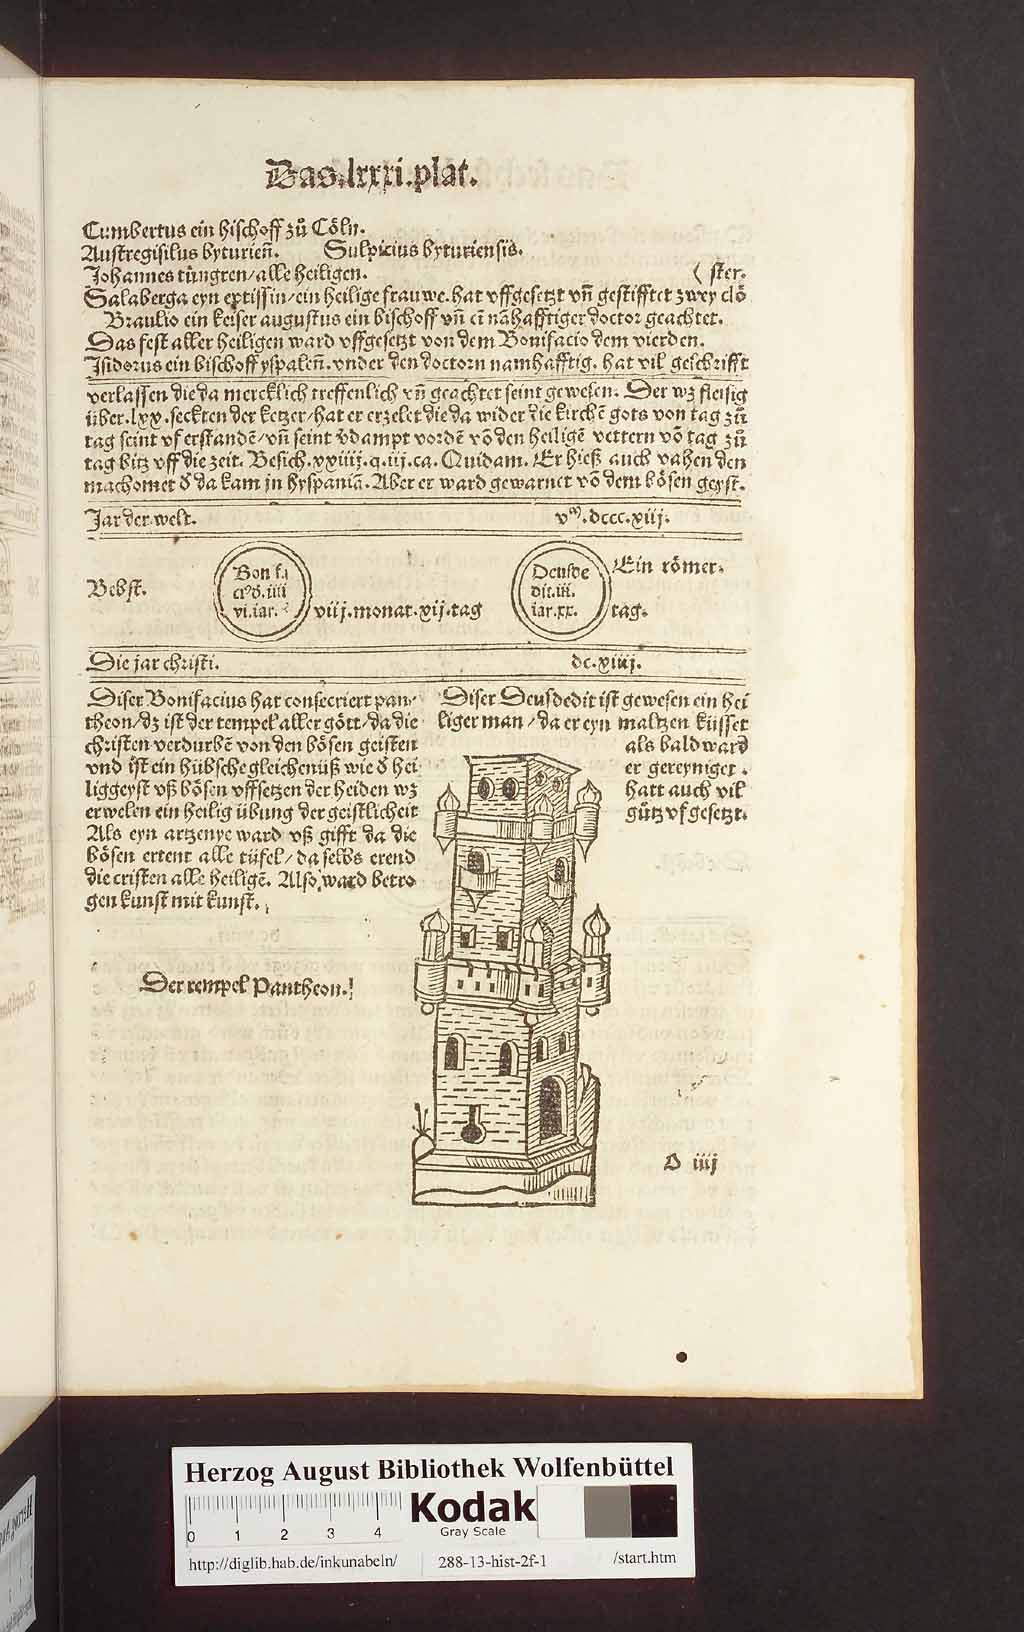 Das.lxxxi.plat.
Cumbertus ein bischoff zů Cöln.
Austregisilus byturien̄. Sulpicius byturiensis.
Johannes tüngren/alle heiligen. ( ster.
Salaberga eyn eptissin/ein heilige frauwe.hat vffgesetzt vn̄ gestifftet zwey clö
Braulio ein keiser augustus ein bischoff vn̄ eī nāhafftiger doctor geachtet.
Das fest aller heiligen ward vffgesetzt von dem Bonifacio dem vierden.
Jsidorus ein bischoff yspalen̄.vnder den doctorn namhafftig. hat vil geschrifft
verlassen die da mercklich treffenlich vn̄ geachtet seint gewesen. Der wz fleisig
über.lxx.seckten der ketzer/hat er erzelet die da wider die kirchē gots von tag zů
tag seint vf erstandē/vn̄ seint v̄dampt vordē vō den heiligē vettern vō tag zů
tag bitz vff die zeit. Besich.xxiiij.q.iij.ca. Quidam. Er hieß auch vahen den
machomet d̄ da kam jn hyspaniā. Aber er ward gewarnet vō dem bösen geyst.
Jar der welt. vᵐ.dccc.xiij.
Bebst.
Bon f.
ciꝰ d̄.iiij
vi.iar.
viij.monat.xij.tag
Deusde
dit.iij.
iar.xx.
Ein römer.
tag.
Die jar christi. dc.xiiij.
Diser Bonifacius hat consecriert pan-
theon/dz ist der tempel aller gött/da die
christen verdurbē von den bösen geisten
vnd ist ein hübsche gleichenüß wie d̄ hei
liggeyst vß bösen vffsetzen der heiden wz
erwelen ein heilig übung der geistlicheit
Als eyn artzenye ward vß gifft da die
bösen ertent alle tüfel/da selbs erend
die cristen alle heiligē. Also ward betro
gen kunst mit kunst.
Diser Deusdedit ist gewesen ein hei
liger man/da er eyn maltzen küsset
als bald ward
er gereyniget.
hatt auch vil
gůtz vf gesetzt.
Der tempel Pantheon.
D iiij
Herzog August Bibliothek Wolfenbüttel
0 1 2 3 4
Kodak
Gray Scale
http://diglib.hab.de/inkunabeln/ 288-13-hist-2f-1 /start.htm